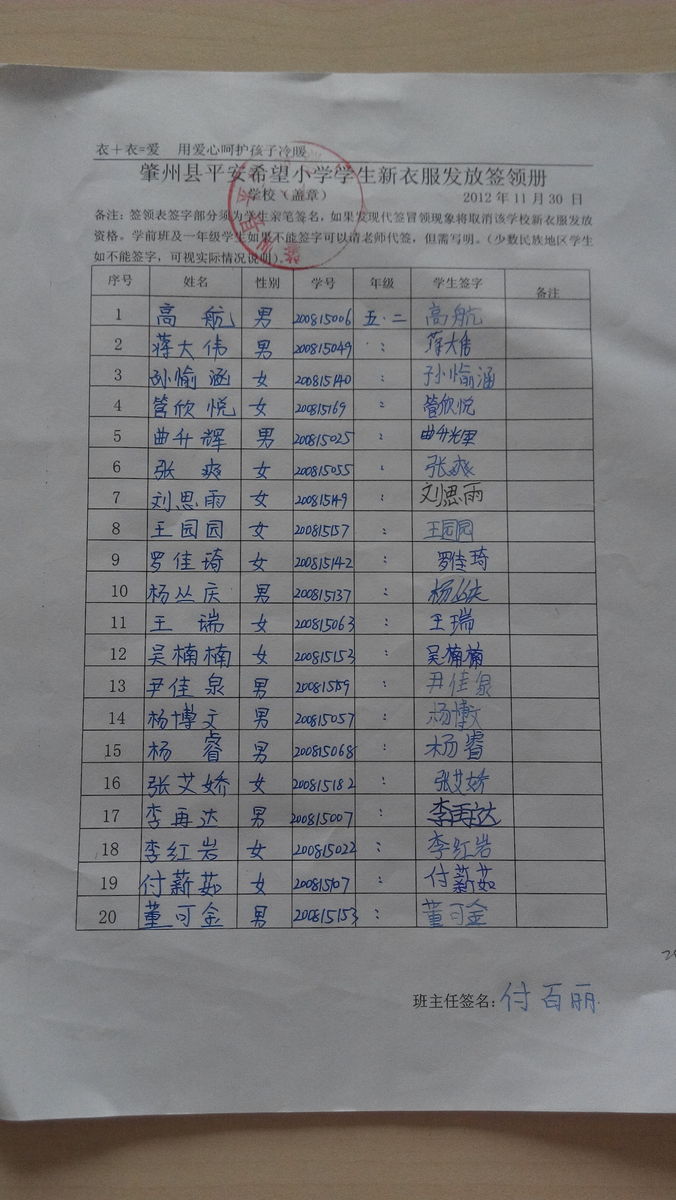 衣＋衣=爱 用爱心呵护孩子冷暖
肇州县平安希望小学学生新衣服发放签领册
学校（盖章） 2012 年 11 月 30 日
备注：签领表签字部分须为学生亲笔签名，如果发现代签冒领现象将取消该学校新衣服发放
资格。学前班及一年级学生如果不能签字可以请老师代签，但需写明。（少数民族地区学生
如不能签字，可视实际情况说明）。
序号 姓名 性别 学号 年级 学生签字 备注
1 高航 男 200815006 五·二 高航
2 蒋大伟 男 200815049 : 蒋大伟
3 孙愉涵 女 200815140 : 孙愉涵
4 管欣悦 女 200815169 : 管欣悦
5 曲升辉 男 200815025 : 曲升辉
6 张爽 女 200815055 : 张爽
7 刘思雨 女 200815149 : 刘思雨
8 王园园 女 200815157 : 王园园
9 罗佳琦 女 200815142 : 罗佳琦
10 杨丛庆 男 200815137 : 杨丛庆
11 王瑞 女 200815063 : 王瑞
12 吴楠楠 女 200815153 : 吴楠楠
13 尹佳泉 男 200815159 : 尹佳泉
14 杨博文 男 200815057 : 杨博文
15 杨睿 男 200815068 : 杨睿
16 张艾娇 女 200815182 : 张艾娇
17 李再达 男 200815007 : 李再达
18 李红岩 女 200815022 : 李红岩
19 付薪茹 女 200815107 : 付薪茹
20 董可金 男 200815153 : 董可金
班主任签名：付百丽